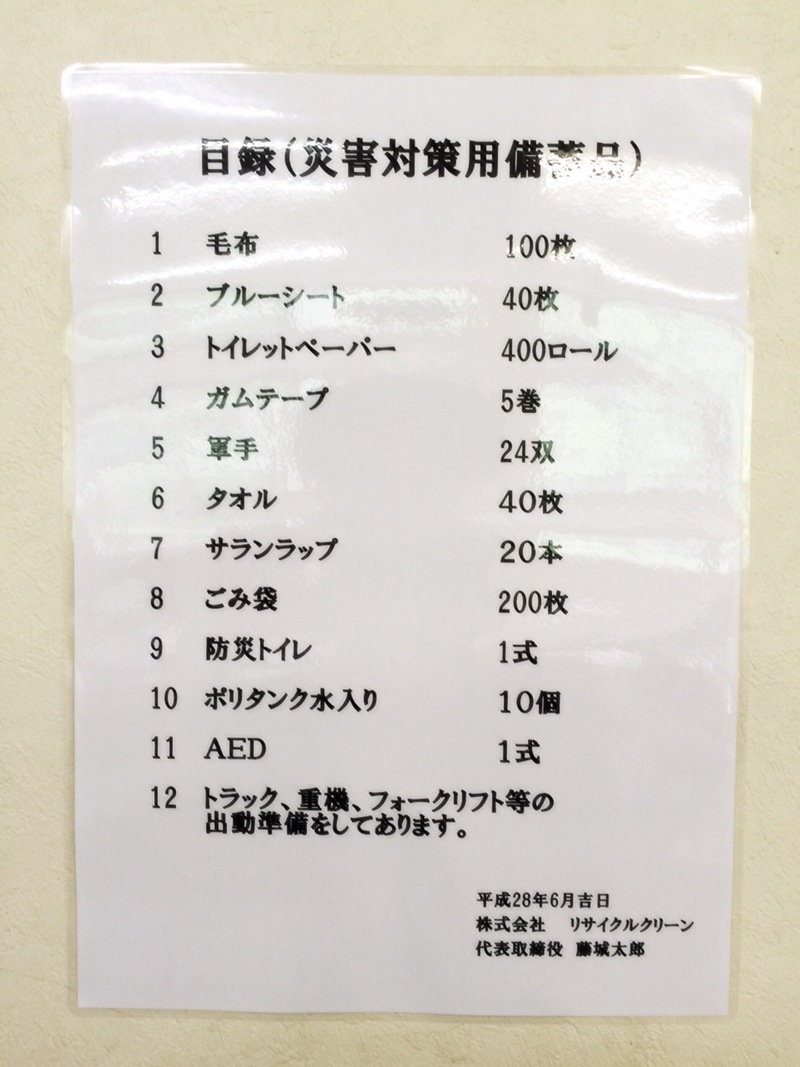 目録(災害対策用備蓄品)
1 毛布 100枚
2 ブルーシート 40枚
3 トイレットペーパー 400ロール
4 ガムテープ 5巻
5 軍手 24双
6 タオル 40枚
7 サランラップ 20本
8 ごみ袋 200枚
9 防災トイレ 1式
10 ポリタンク水入り 10個
11 AED 1式
12 トラック、重機、フォークリフト等の
出動準備をしてあります。
平成28年6月吉日
株式会社 リサイクルクリーン
代表取締役 藤城太郎